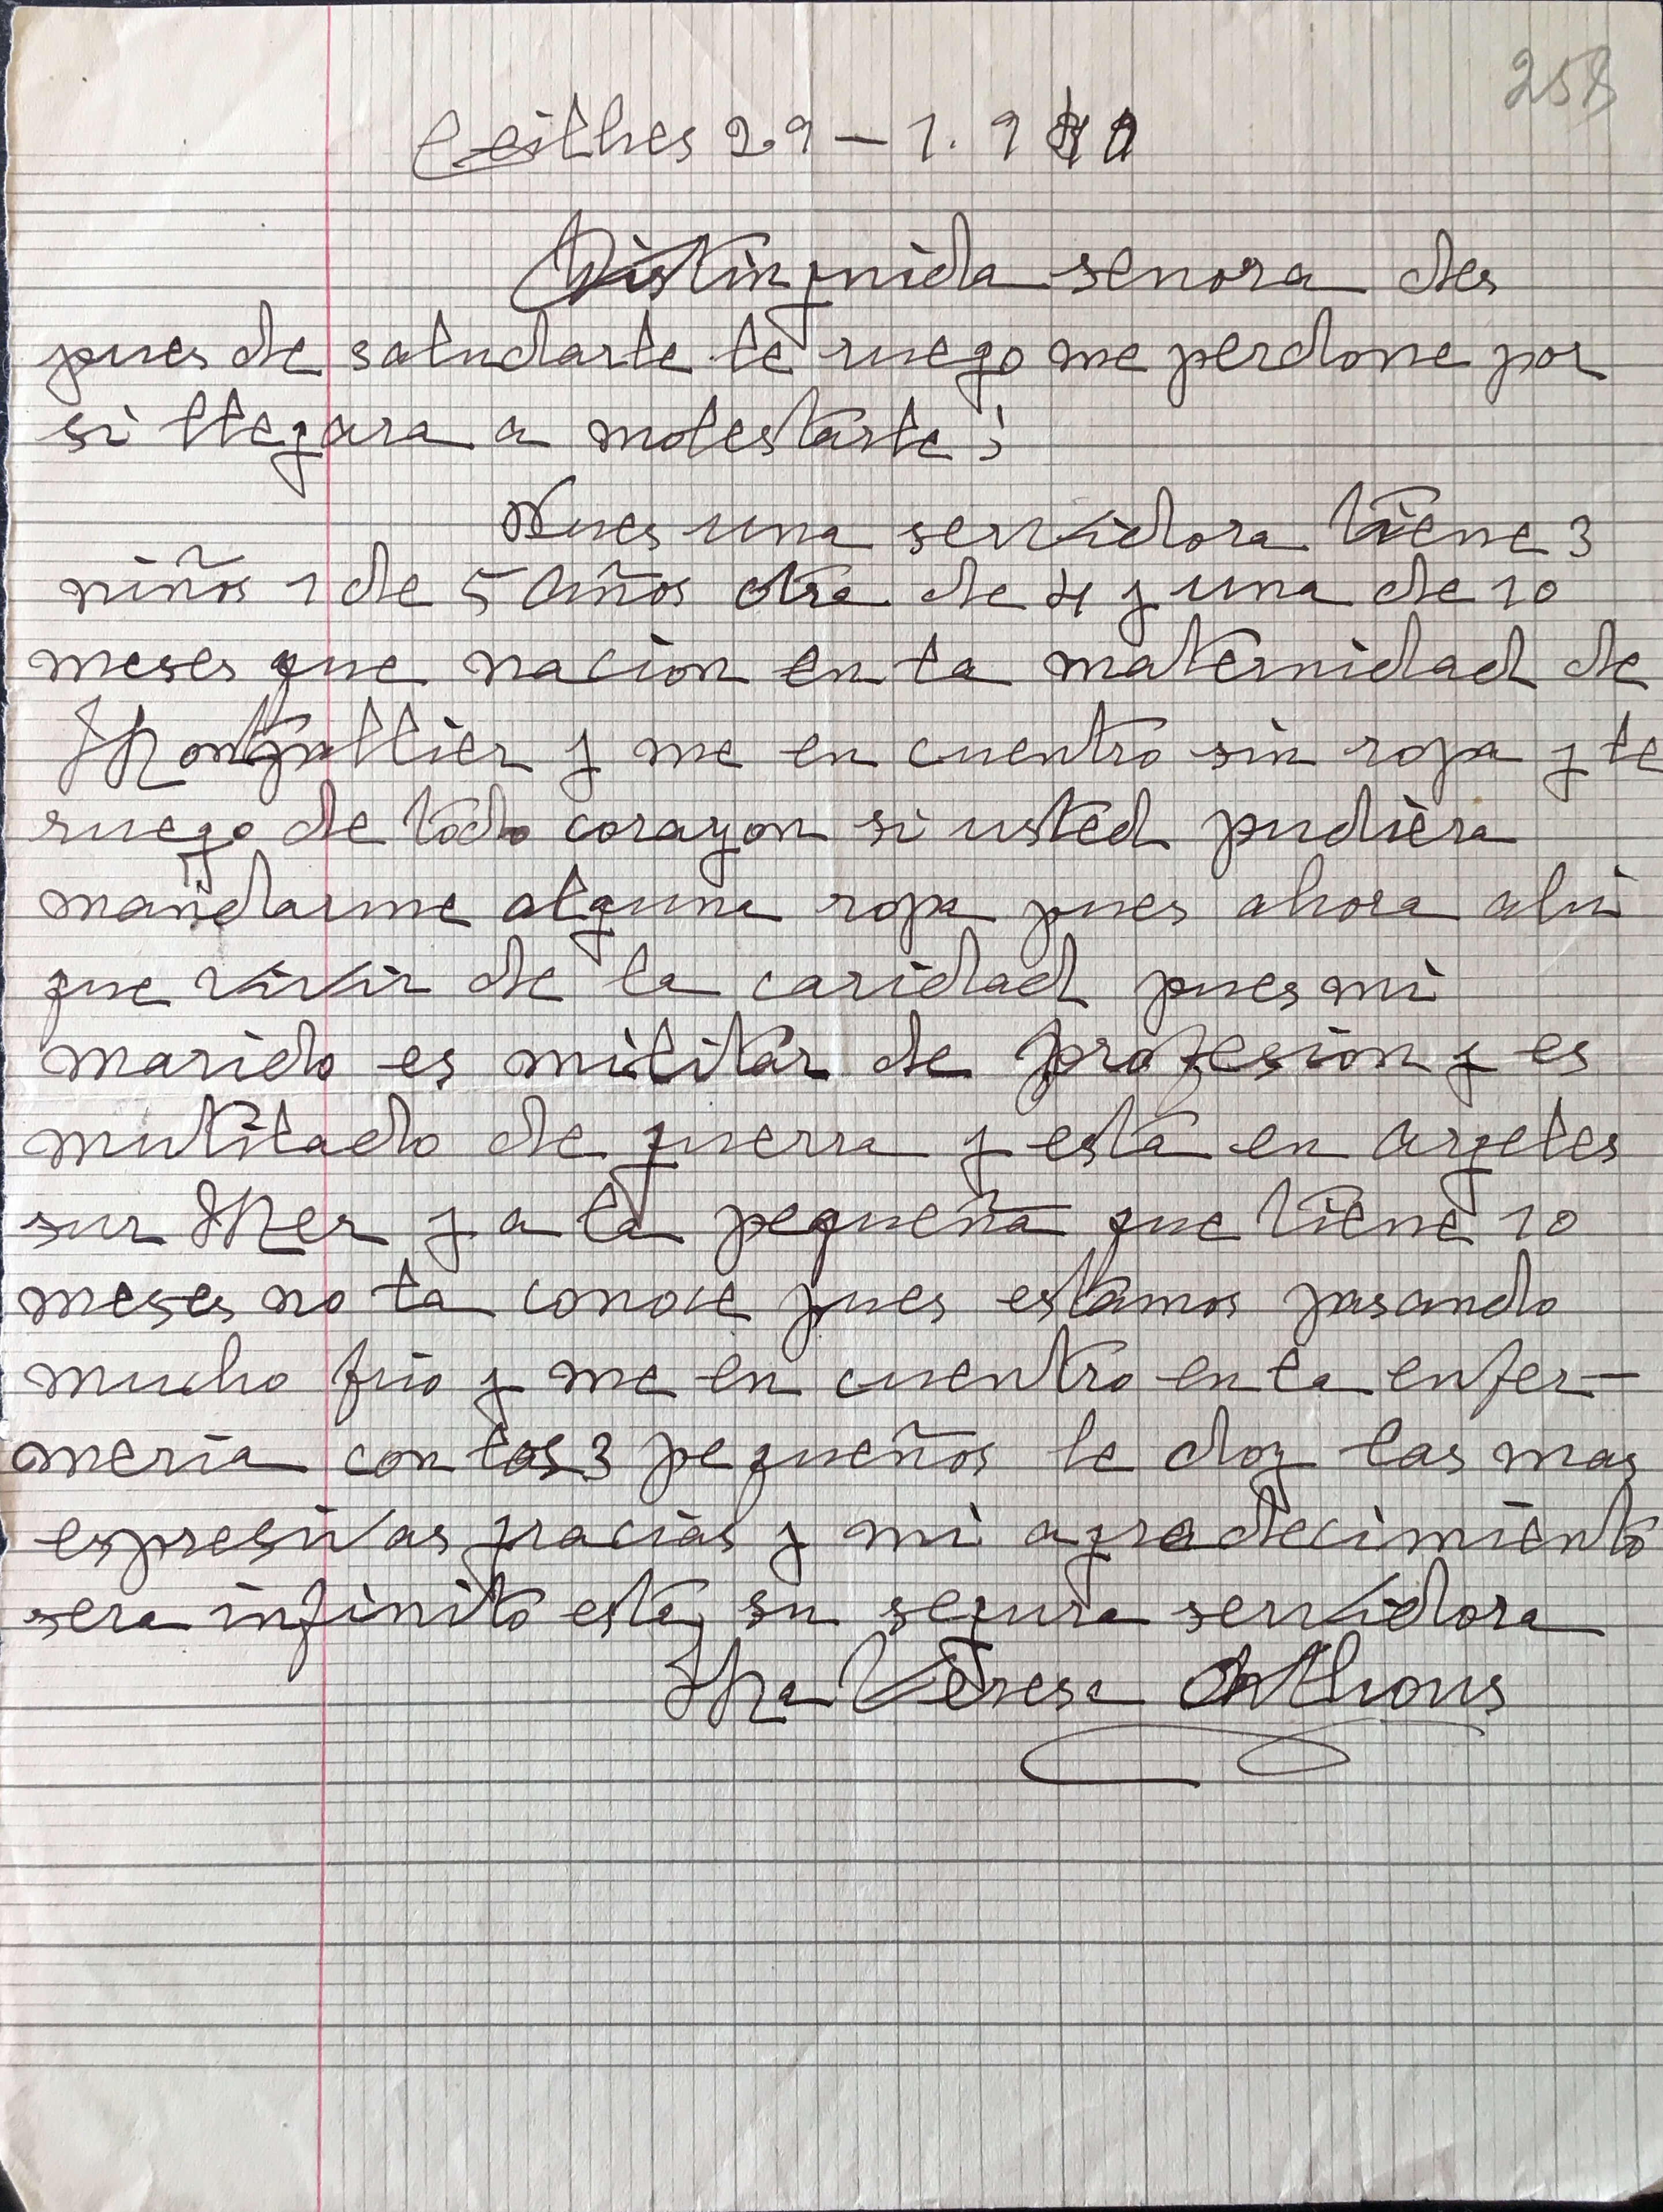 258
Ceilhes 29-1.940
Distinguida senora des
pues de saludarle le ruego me perdone por
si llegara a molestarle;
Pues una servidora tiene 3
niños 1 de 5 años otra de 4 y una de 10
meses que nacion en la maternidad de
Montpullier y me en cuentro sin ropa y le
ruego de todo corazon si usted pudiera
mandarme alguna ropa pues ahora ahi
que vivir de la caridad pues mi
marido es militar de profesion y es
mutilado de guerra y esta en argeles
sur Mer y a la pequeña que tiene 10
meses no la conoce pues estamos pasando
mucho frio y me en cuentro en la enfer-
meria con los 3 pequeños le doy las mas
espresivas gracias y mi agradecimiento
sera infinito esta su segura servidora
Ma Teresa